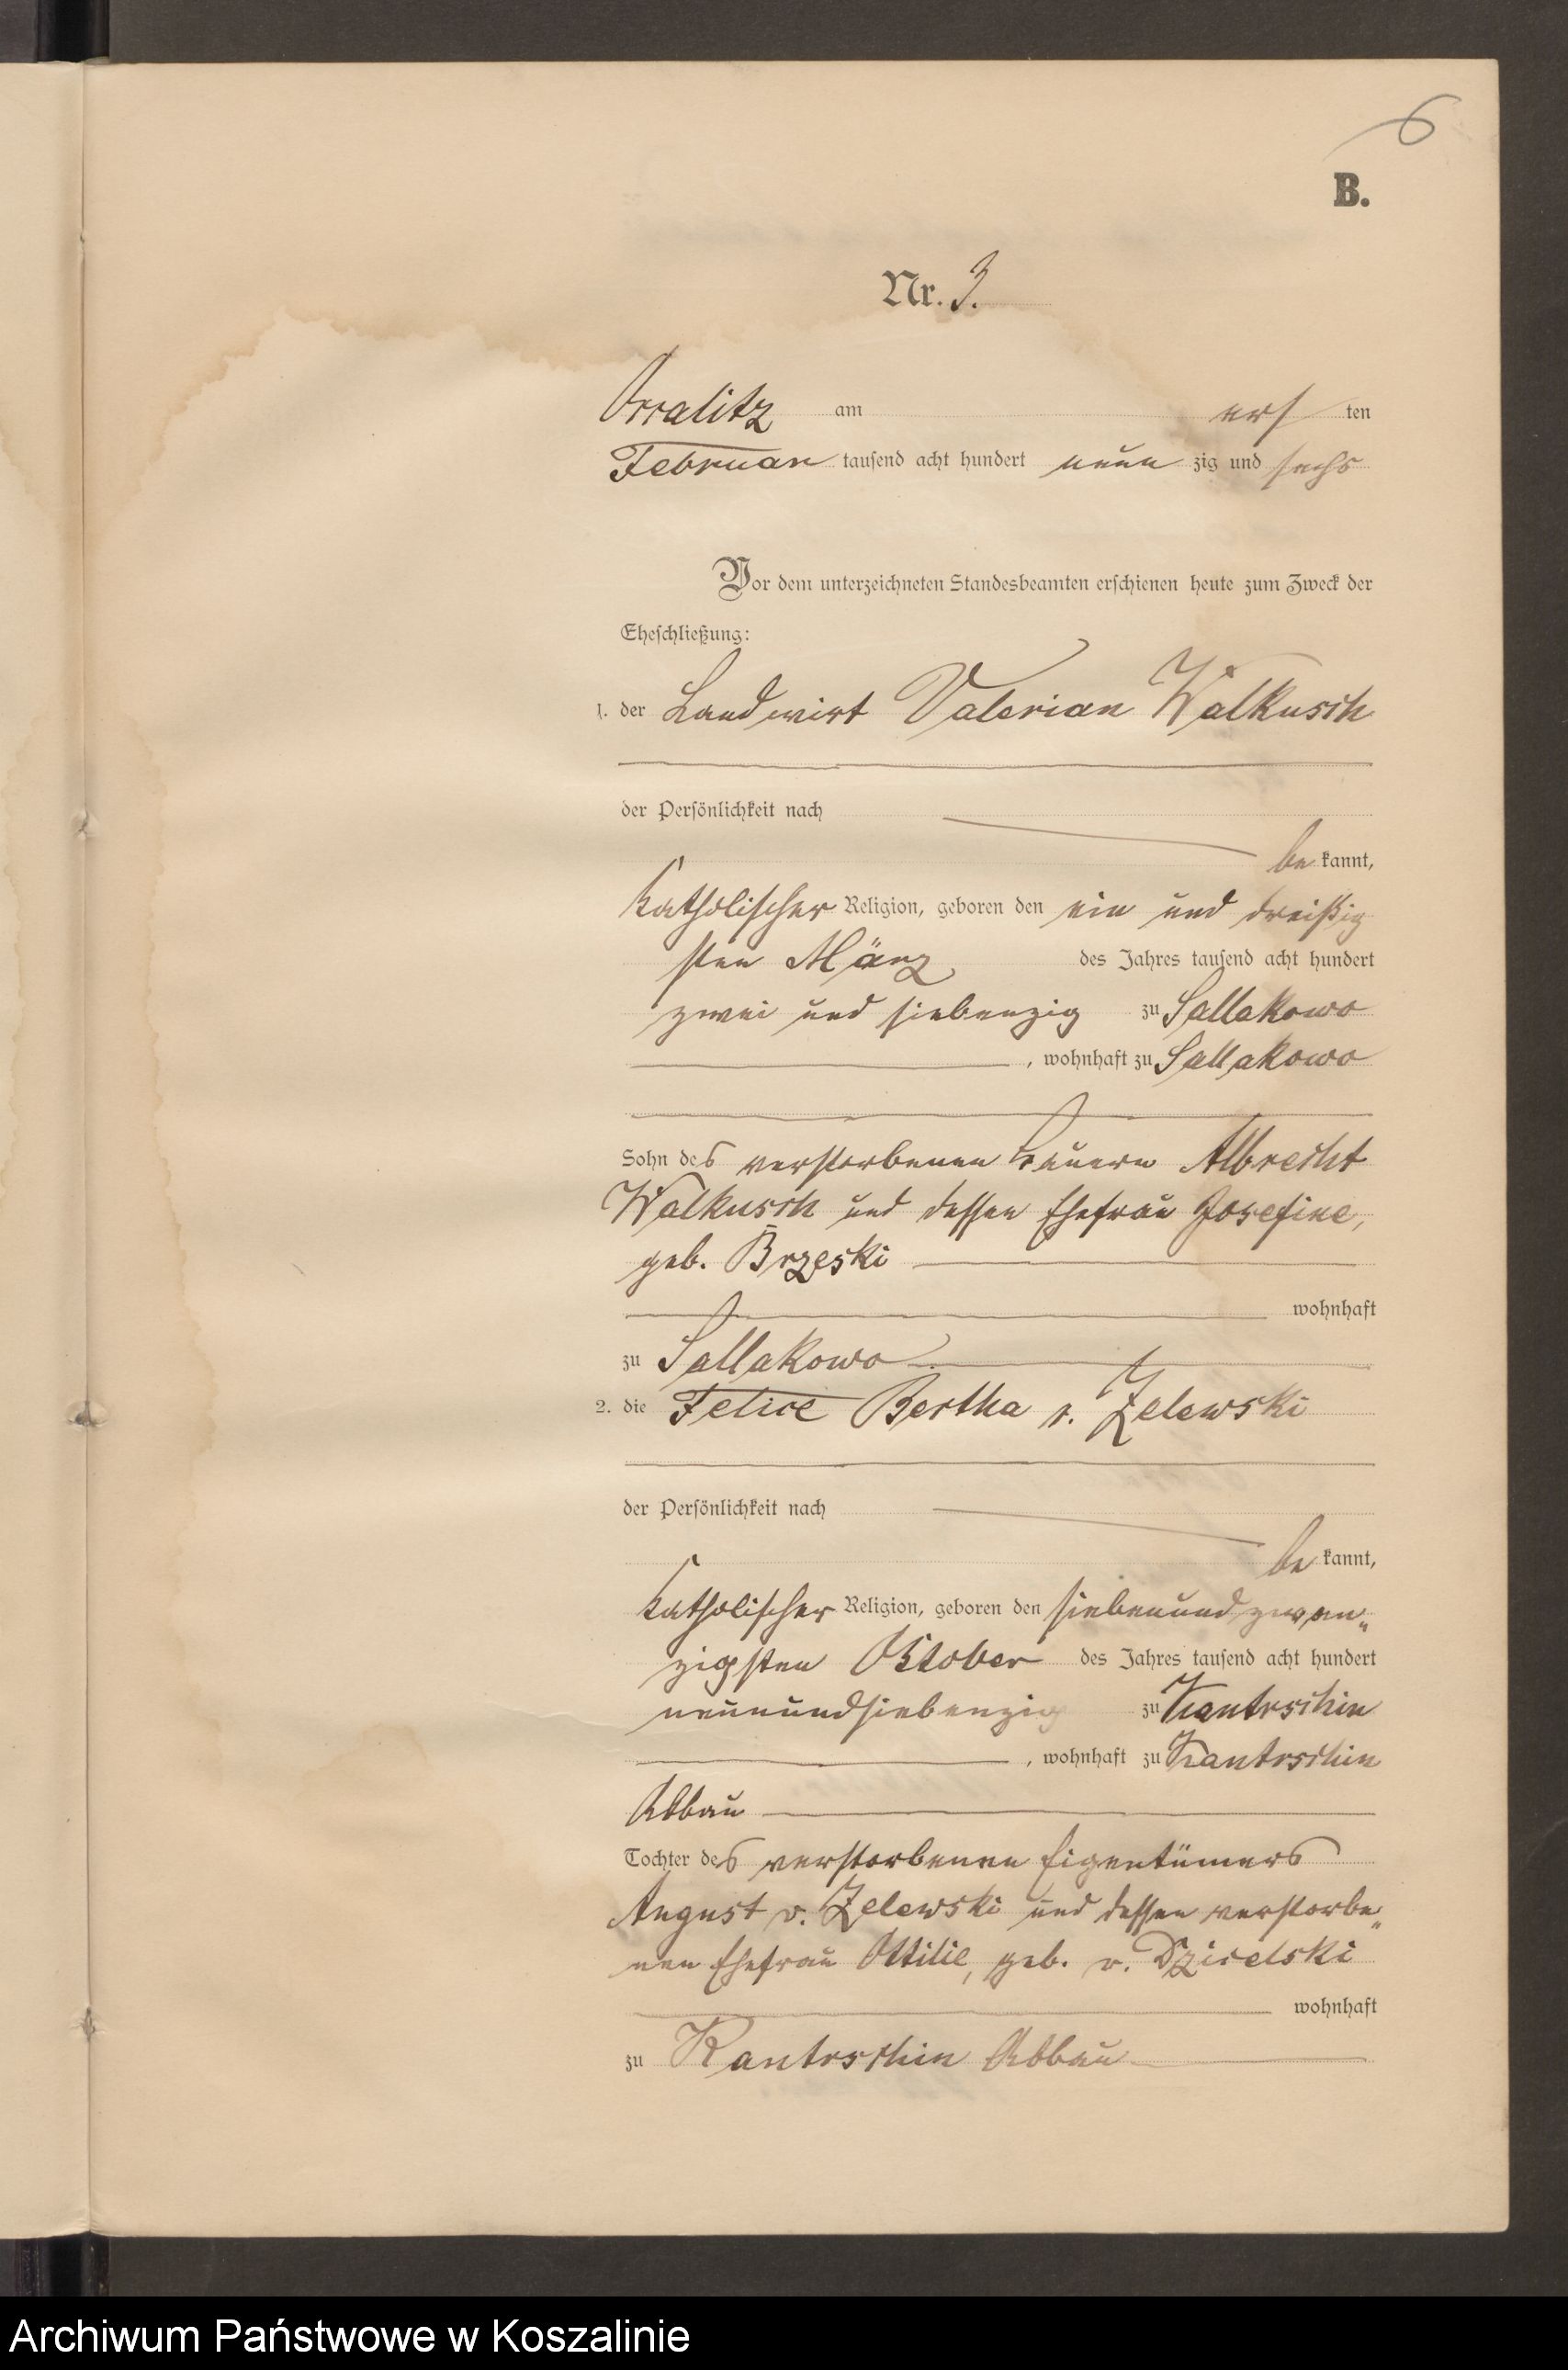 6
B.
Nr. 3.
Ossalitz am ersten
Februar tausend acht hundert neunzig und sechs
Vor dem unterzeichneten Standesbeamten erschienen heute zum Zweck der
Eheschließung:
1. der Landwirt Valerian Walkusch
der Persönlichkeit nach
bekannt,
katholischer Religion, geboren den ein und dreißig
sten März des Jahres tausend acht hundert
zwei und siebenzig zu Sallakowo
, wohnhaft zu Sallakowo
Sohn des verstorbenen Bauern Albrecht
Walkusch und dessen Ehefrau Josefine,
geb. Brzeski
wohnhaft
zu Sallakowo
2. die Felice Bertha v. Zelewski
der Persönlichkeit nach
bekannt,
katholischer Religion, geboren den siebenundzwan„
zigsten Oktober des Jahres tausend acht hundert
neunundsiebenzig zu Kantrschin
, wohnhaft zu Kantrschin
Abbau
Tochter des verstorbenen Eigentümers
August v. Zelewski und dessen verstorbe„
nen Ehefrau Ottilie, geb. v. Dzicelski
wohnhaft
zu Kantrschin Abbau
Archiwum Państwowe w Koszalinie